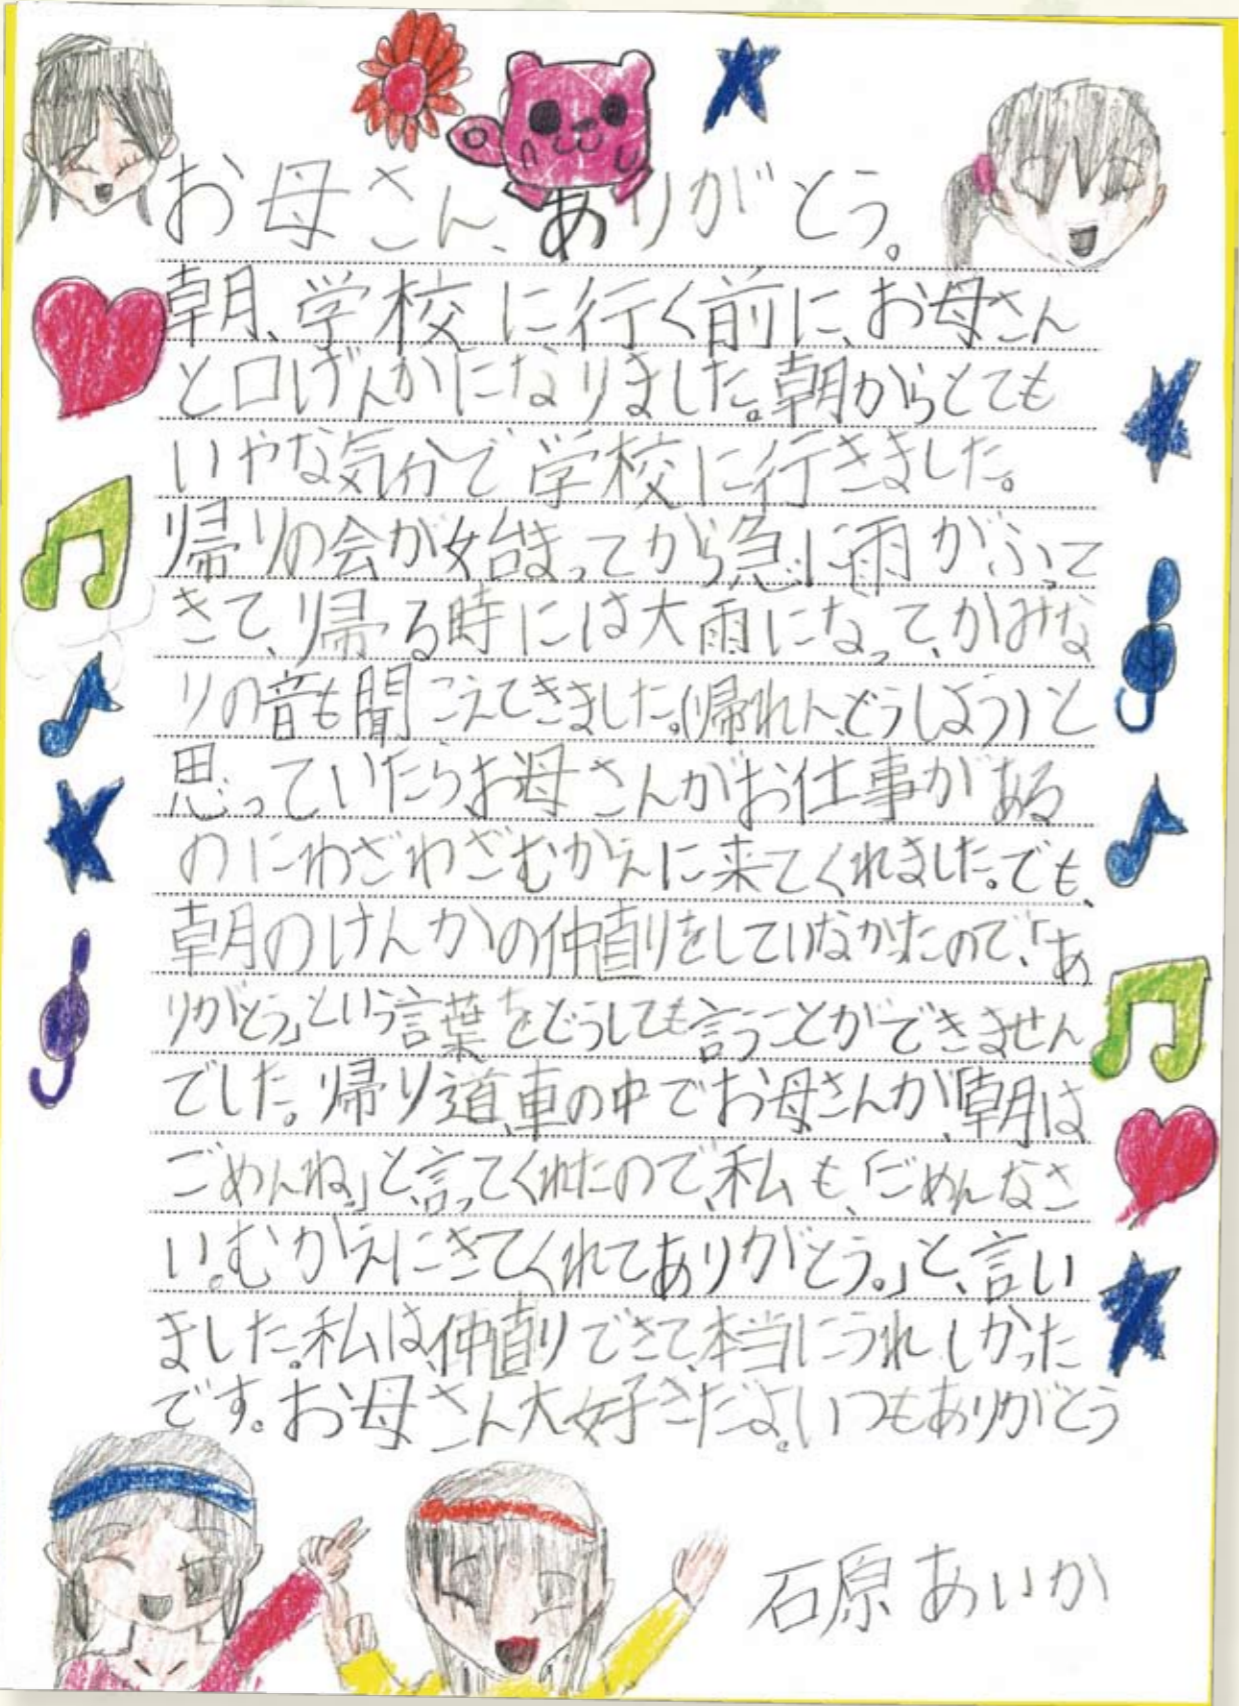 お母さん、ありがとう。
朝、学校に行く前に、お母さん
と口げんかになりました。朝からとても
いやな気分で学校に行きました。
帰りの会が始まってから急に雨がふって
きて、帰る時には大雨になって、かみな
りの音も聞こえてきました。(帰れん、どうしよう)と
思っていたらお母さんがお仕事がある
のにわざわざむかえに来てくれました。でも、
朝のけんかの仲直りをしていなかったので、「あ
りがとう」という言葉をどうしても言うことができません
でした。帰り道、車の中でお母さんが、「朝は
ごめんね」と、言ってくれたので、私も、「ごめんなさ
い。むかえにきてくれてありがとう。」と、言い
ました。私は、仲直りできて、本当にうれしかった
です。お母さん大好きだよ。いつもありがとう
石原あいか